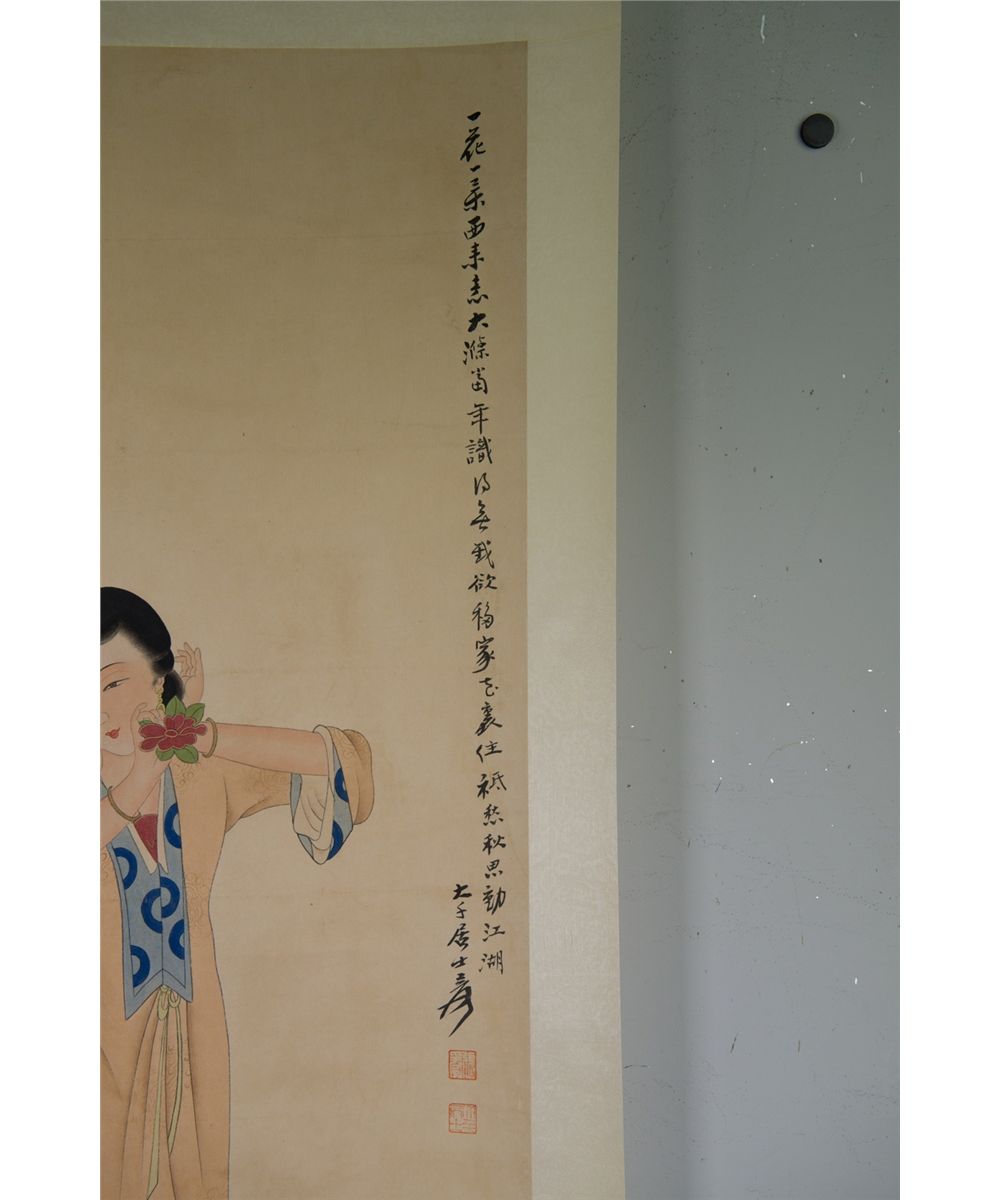 一花一葉西来意大滌當年識得無我欲移家花裏住祗愁秋思動江湖
大千居士爰